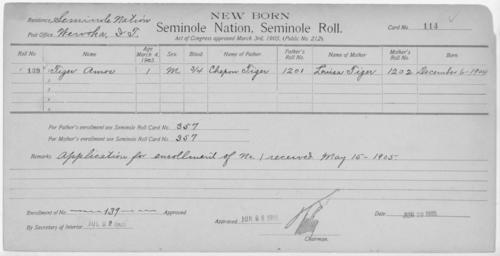 NEW BORN
Residence, Seminole Nation
Seminole Nation, Seminole Roll.
Card No. 114
Post Office, Wewoka, I.T.
Act of Congress approved March 3rd, 1905, (Public No. 212).
Roll No. Name Age March 4, 1905. Sex. Blood. Name of Father Father's Roll No. Name of Mother Mother's Roll No. Born
139 1 Tiger Amos 1 M 3/4 Chepon Tiger 1201 Louisa Tiger 1202 December 6-1904
2
3
For Father's enrollment see Seminole Roll Card No. 357
For Mother's enrollment see Seminole Roll Card No. 357
Remarks: Application for enrollment of No. 1 received May 15-1905
Enrollment of No. 139 Approved
By Secretary of Interior
Approved
Date
Chairman.